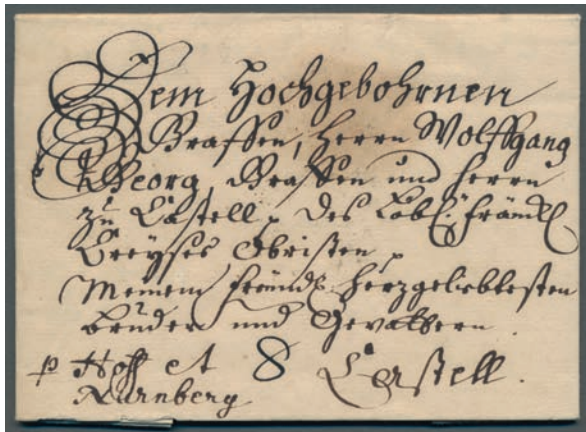 Dem Hochgebohrnen
Graffen, Herrn Wolffgang
Georg, Graffen und Herrn
zu Castell, des Löbl: Fränckl
Creyses Obristen,
Meinem freündl: herzgeliebtesten
Bruder und Gevattern
p Hoff et 8 Castell.
Nürnberg